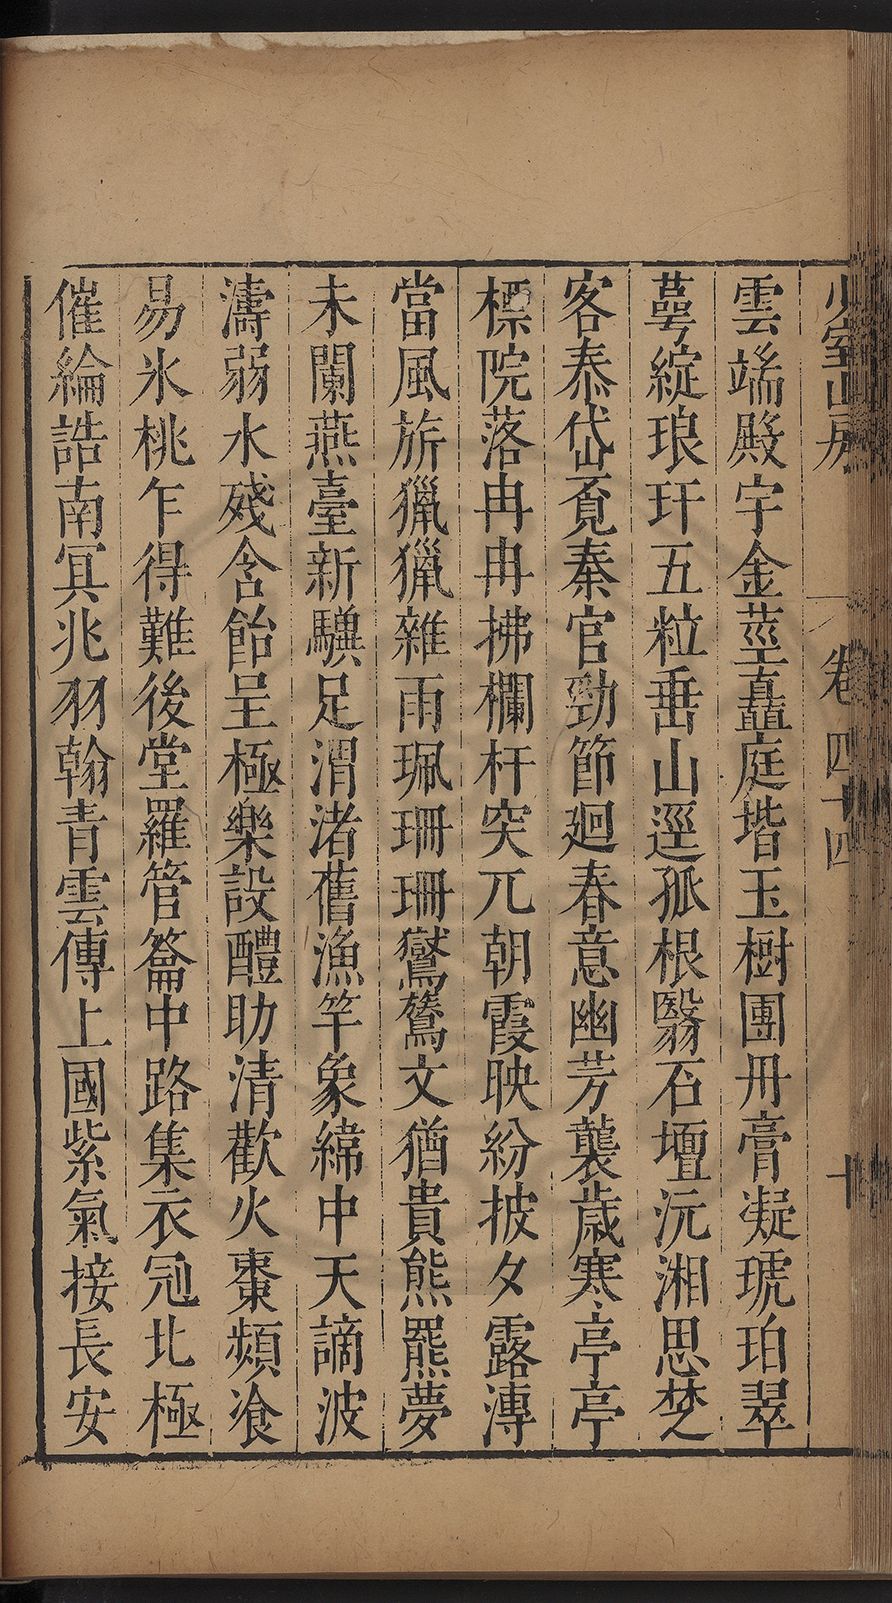 少室山房
卷四十四
十
雲端殿宇金莖矗庭堦玉樹團丹膏凝琥珀翠
萼綻琅玕五粒垂山逕孤根翳石壇沅湘思楚
客泰岱覔秦官勁節廻春意幽芳襲歳寒亭亭
標院落冉冉拂欄杆突兀朝霞映紛披夕露漙
當風旂獵獵雜雨珮珊珊鸑鷟文猶貴熊羆夢
未闌燕臺新驥足渭渚舊漁竿象緯中天謫波
濤弱水殘含飴呈極樂設醴助清歡火棗頻飡
易氷桃乍得難後堂羅管籥中路集衣冠北極
催綸誥南冥兆羽翰青雲傳上國紫氣接長安